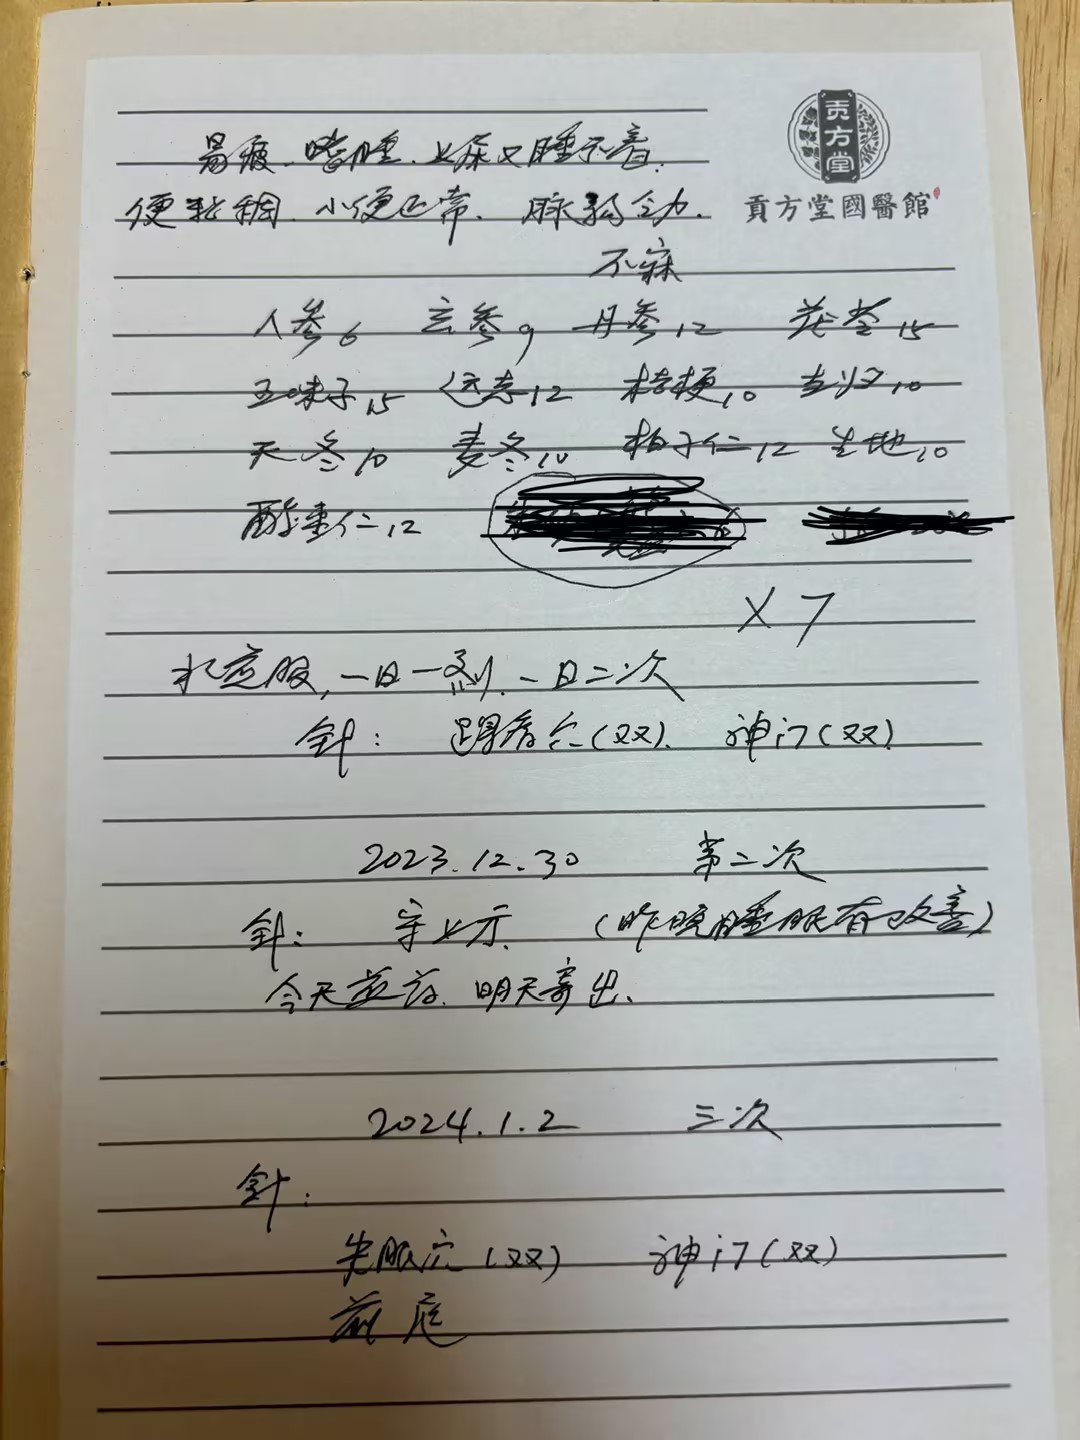 贡方堂
貢方堂國醫館
易疲、嗜睡、上床又睡不着、
便粘稠、小便正常、脉弱
不寐
人参6 玄参9 丹参12 茯苓15
五味子15 远志12 桔梗10 当归10
天冬10 麦冬10 柏子仁12 生地10
酸枣仁12
×7
水煎服,一日一剂、一日二次
针: (双)、神门(双)
2023.12.30 第二次
针: 守上方、(昨晚睡眠有改善)
今天 明天寄出、
2024.1.2 三次
针:
失眠穴(双) 神门(双)
前庭